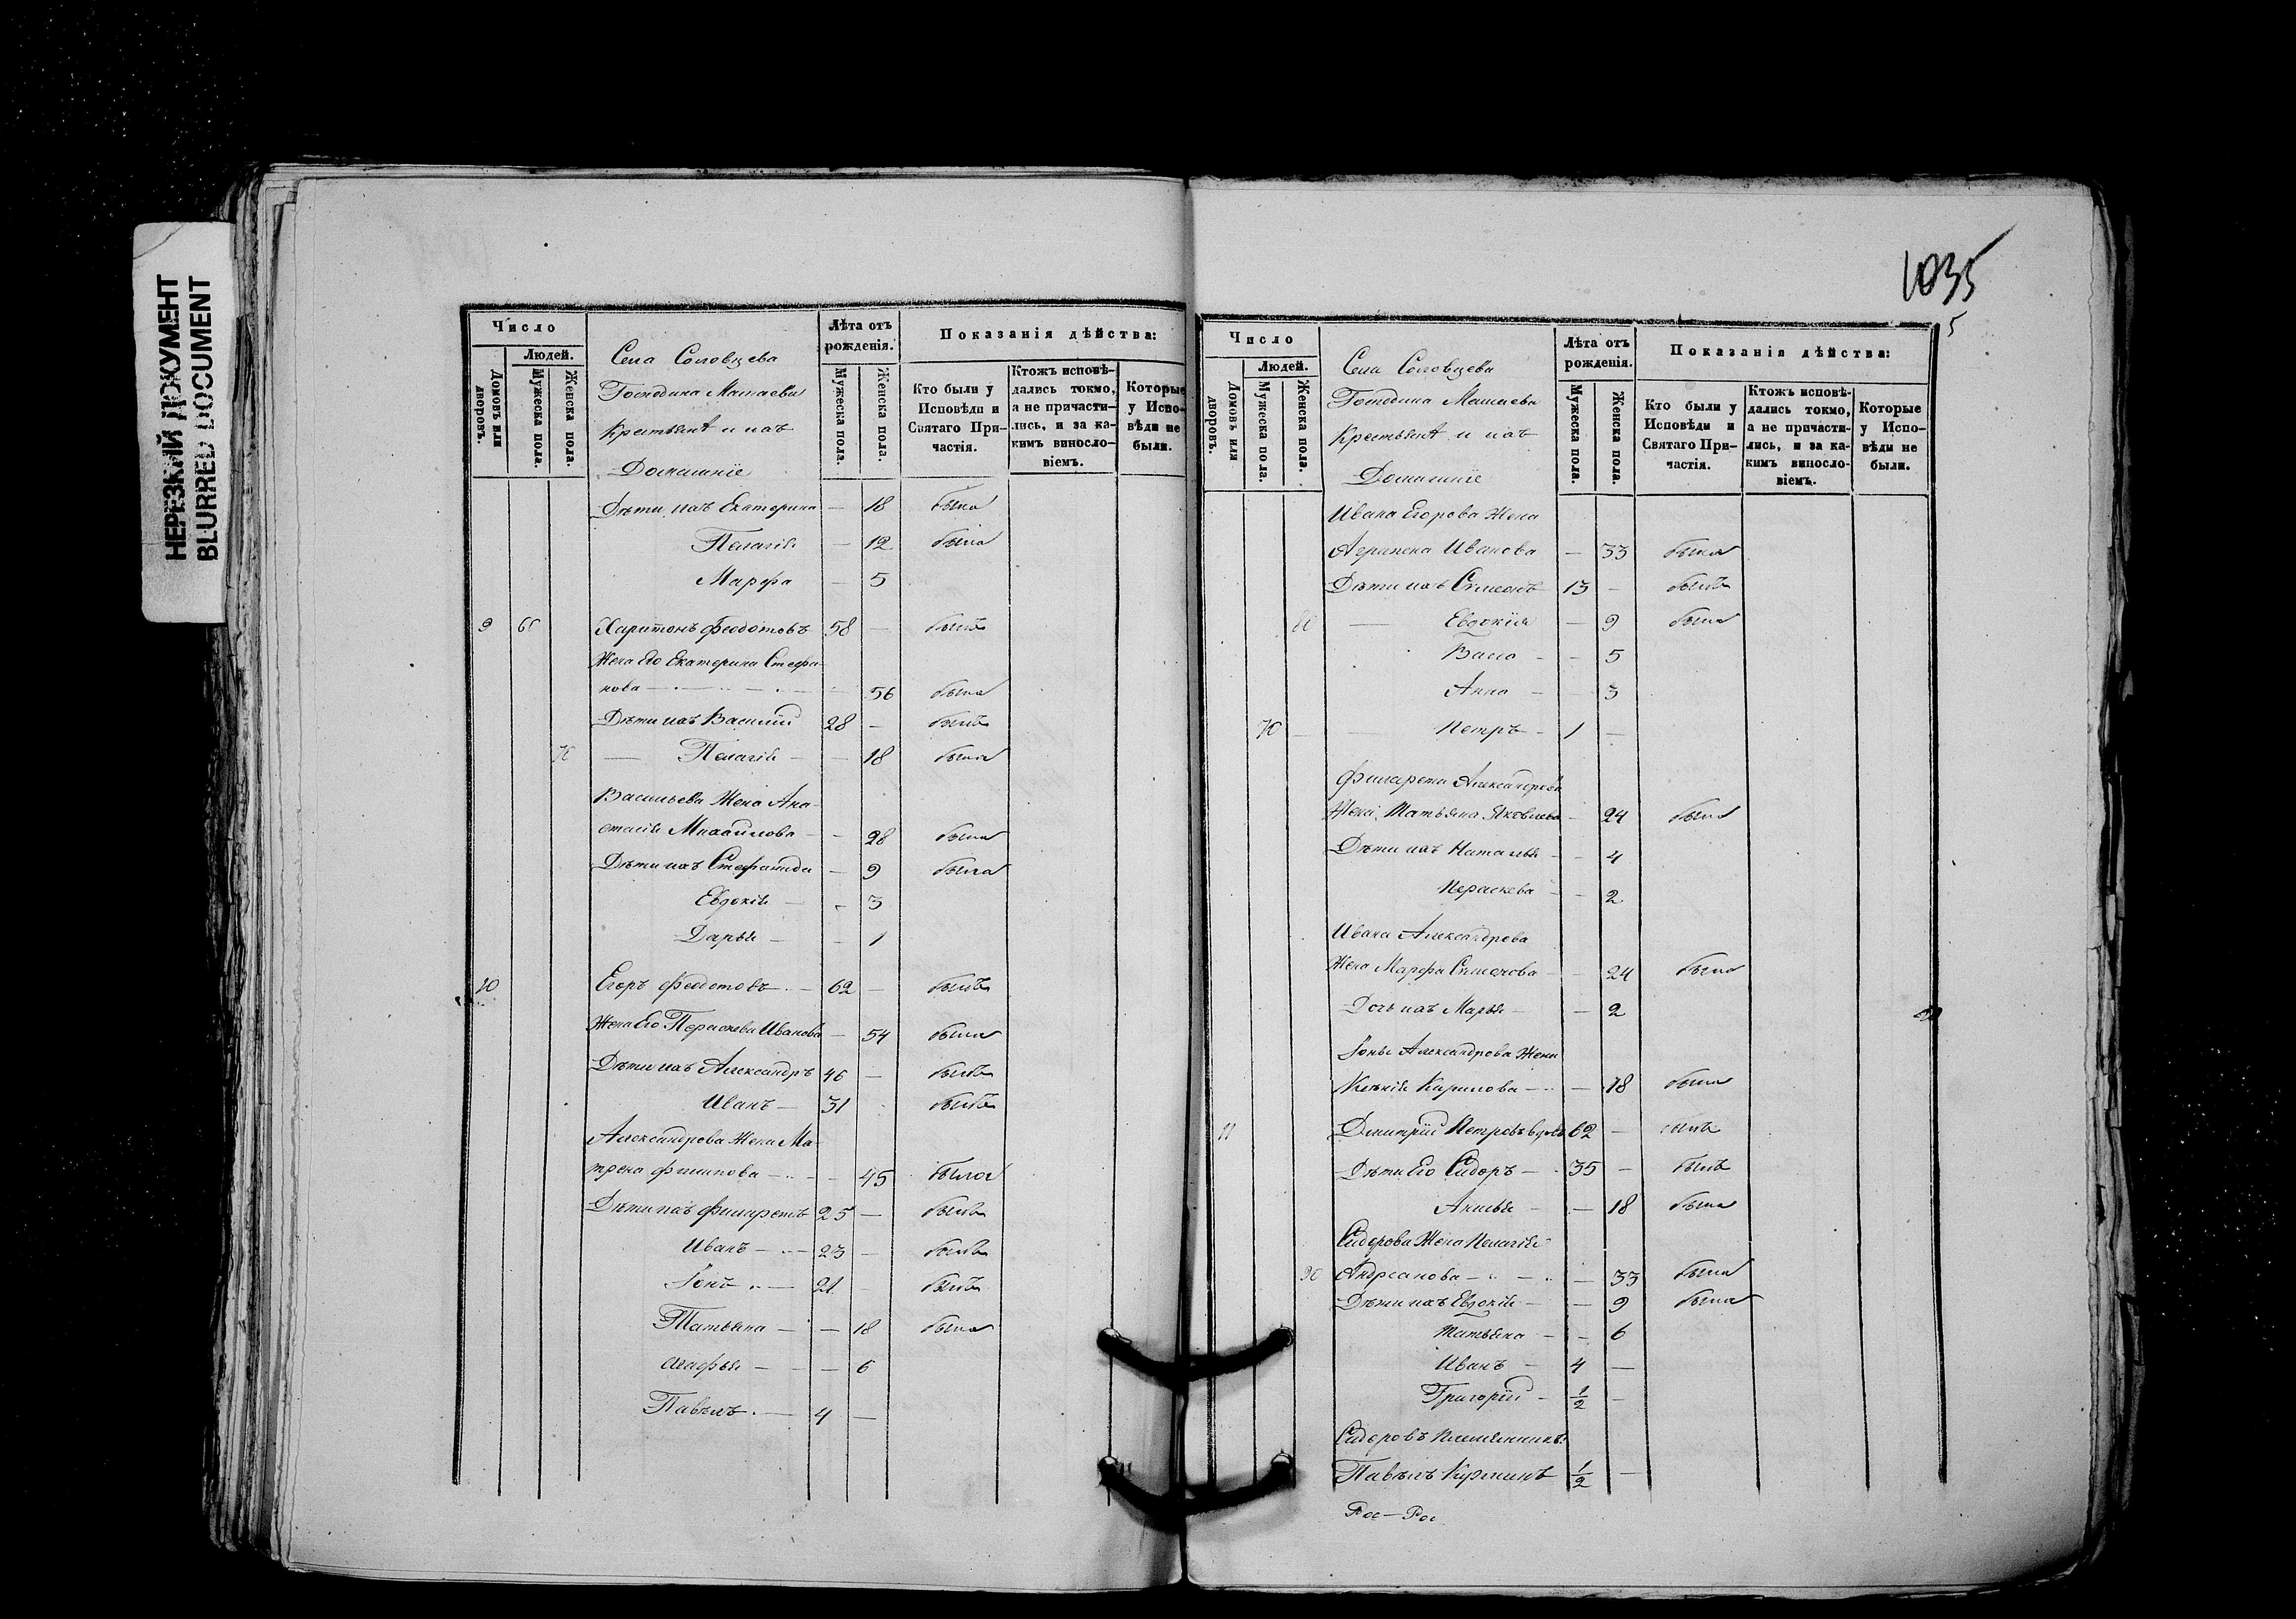 НЕРЕЗКИЙ ДОКУМЕНТ
BLURRED DOCUMENT
Число
Людей.
Домовъ или дворовъ.
Мужеска пола.
Женска пола.
Села Соловцева
Господина Машаева
Крестьяне и ихъ
Домашніе
Лѣта отъ рожденія.
Мужеска пола.
Женска пола.
Показанія дѣйства:
Кто были у Исповѣди и Святаго Причастія.
Ктожъ исповѣдались токмо, а не причастились, и за какимъ винословіемъ.
Которые у Исповѣди не были.
Дѣти ихъ Екатерина — 18 была
Пелагія — 12 была
Марфа — 5
9 Харитонъ Феодотовъ 58 — былъ
Жена Его Екатерина Стефа-
нова — 56 была
Дѣти ихъ Василій 28 — былъ
70 — Пелагія — 18 была
Васильева Жена Ана-
стасія Михайлова — 28 была
Дѣти ихъ Стефанида — 9 была
Евдокія — 3
Дарья — 1
10 Егоръ Феодотовъ — 62 — былъ
Жена Его Параскева Иванова — 54 была
Дѣти ихъ Александръ 46 — былъ
Иванъ — 31 былъ
Александрова Жена Ма-
трена Филипова — 45 была
Дѣти ихъ Филаретъ 25 — былъ
Иванъ — 23 — былъ
Іонъ — 21 былъ
Татьяна — 18 была
Агафья — 6
Павелъ — 4 —
1035
5
Число
Людей.
Домовъ или дворовъ.
Мужеска пола.
Женска пола.
Села Соловцева
Господина Машаева
Крестьяне и ихъ
Домашніе
Лѣта отъ рожденія.
Мужеска пола.
Женска пола.
Показанія дѣйства:
Кто были у Исповѣди и Святаго Причастія.
Ктожъ исповѣдались токмо, а не причастились, и за какимъ винословіемъ.
Которые у Исповѣди не были.
Ивана Егорова Жена
Агрипена Иванова — 33 была
Дѣти ихъ Симеонъ 13 — былъ
80 — Евдокія — 9 была
Васса — 5
Анна — 3
70 — Петръ — 1 —
Филарета Александрова
Жена Татьяна Яковлева — 24 была
Дѣти ихъ Наталья — 4
Параскева — 2
Ивана Александрова
Жена Марфа Симеонова — 24 была
Дочь ихъ Марья — 2
Іоны Александрова Жена
Ксенія Карпова — 18 была
11 Дмитрій Петровъ вдовъ 62 — былъ
Дѣти Его Сидоръ — 35 — былъ
Акилья — 18 была
Сидорова Жена Пелагія
90 Андреанова — 33 была
Дѣти ихъ Евдокія — 9 была
Татьяна — 6
Иванъ — 4 —
Григорій — 1/2 —
Сидоровъ Племянникъ
Павелъ Кузминъ 1/2 —